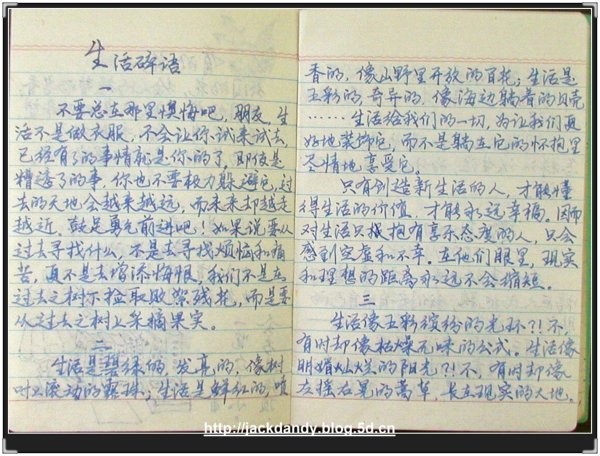 生活碎语
一
不要总在那里懊悔吧，朋友，生
活不是做衣服，不会让你试来试去，
已经有了的事情就是你的了，即使是
糟透了的事，你也不要极力躲避它，过
去的天地会越来越远，而未来却越走
越近，鼓足勇气前进吧！如果说要从
过去寻找什么，不是去寻找烦恼和痛
苦，更不是去增添悔恨，我们不是在
过去之树下捡取败絮残花，而是要
从过去之树上采摘果实。
二
生活是碧绿的，发亮的，像树
叶上滚动的露珠；生活是鲜红的，喷
香的，像山野里开放的百花；生活是
五彩的，奇异的，像海边躺着的贝壳
……生活给我们的一切，为让我们更
好地装饰它，而不是躺在它的怀抱里
尽情地享受它。
只有创造新生活的人，才能懂
得生活的价值，才能永远幸福，因而
对生活只抱有享乐态度的人，只会
感到空虚和不幸。在他们眼里，现实
和理想的距离永远不会缩短。
三
生活像五彩缤纷的光环？！不，
有时却像枯燥无味的公式。生活像
明媚灿烂的阳光？！不，有时却像
左摇右晃的蒿草，长在现实的大地，
http://jackdandy.blog.5d.cn